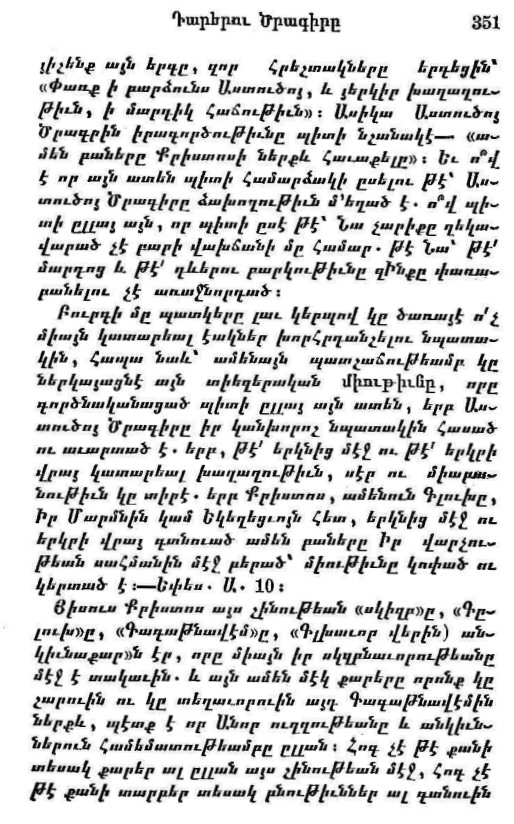 Դարերու Ծրագիրը 351
յիշենք այն երգը, զոր Հրեշտակները երգեցին՝
«Փառք ի բարձունս Աստուծոյ, և յերկիր խաղաղու-
թիւն, ի մարդիկ հաճութիւն»։ Ասիկա Աստուծոյ
Ծրագրին իրագործութիւնը պիտի նշանակէ— «ա-
մեն բաները Քրիստոսի ներքև հաւաքելը»։ Եւ ո՞վ
է որ այն ատեն պիտի համարձակի ըսելու թէ՝ Աս-
տուծոյ Ծրագիրը ձախողութիւն մ՚եղած է. ո՞վ պի-
տի ըլլայ այն, որ պիտի ըսէ թէ՝ Նա չարիքը ղեկա-
վարած չէ բարի վախճանի մը համար. թէ Նա՝ թէ՛
մարդոց և թէ՛ դևերու բարկութիւնը զԻնքը փառա-
բանելու չէ առաջնորդած։
Բուրգի մը պատկերը լաւ կերպով կը ծառայէ ո՛չ
միայն կատարեալ էակներ խորհրդանշելու նպատա-
կին, հապա նաև՝ ամենայն պատշաճութեամբ կը
ներկայացնէ այն տիեզերական միութիւնը, որը
գործնականացած պիտի ըլլայ այն ատեն, երբ Աս-
տուծոյ Ծրագիրը իր կանխորոշ նպատակին հասած
ու աւարտած է. երբ, թէ՛ երկնից մէջ ու թէ՛ երկրի
վրայ կատարեալ խաղաղութիւն, սէր ու միաբա-
նութիւն կը տիրէ. երբ Քրիստոս, ամենուն Գլուխը,
Իր Մարմնին կամ Եկեղեցւոյն հետ, երկնից մէջ ու
երկրի վրայ գտնուած ամեն բաները Իր վարչու-
թեան սահմանին մէջ բերած՝ միութիւնը կոփած ու
կերտած է։—Եփես. Ա. 10։
Յիսուս Քրիստոս այս շինութեան «սկիզբ»ը, «Գը-
լուխ»ը, «Գագաթնավէմ»ը, «Գլխաւոր վերին) ան-
կիւնաքար»ն էր, որը միայն իր սկզբնաւորութեանը
մէջ է տակաւին. և այն ամեն մէկ քարերը որոնք կը
շարուին ու կը տեղաւորուին այդ Գագաթնավէմին
ներքև, պէտք է որ Անոր ուղղութեանը և անկիւն-
ներուն համեմատութեամբը ըլլան։ Հոգ չէ թէ քանի
տեսակ քարեր ալ ըլլան այս շինութեան մէջ, հոգ չէ
թէ քանի տարբեր տեսակ բնութիւններ ալ գտնուին